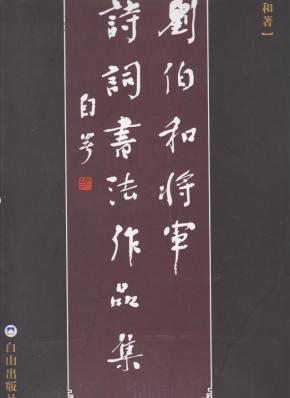 劉伯和将軍
詩詞書法作品集
自萼
和著】
白山出版社